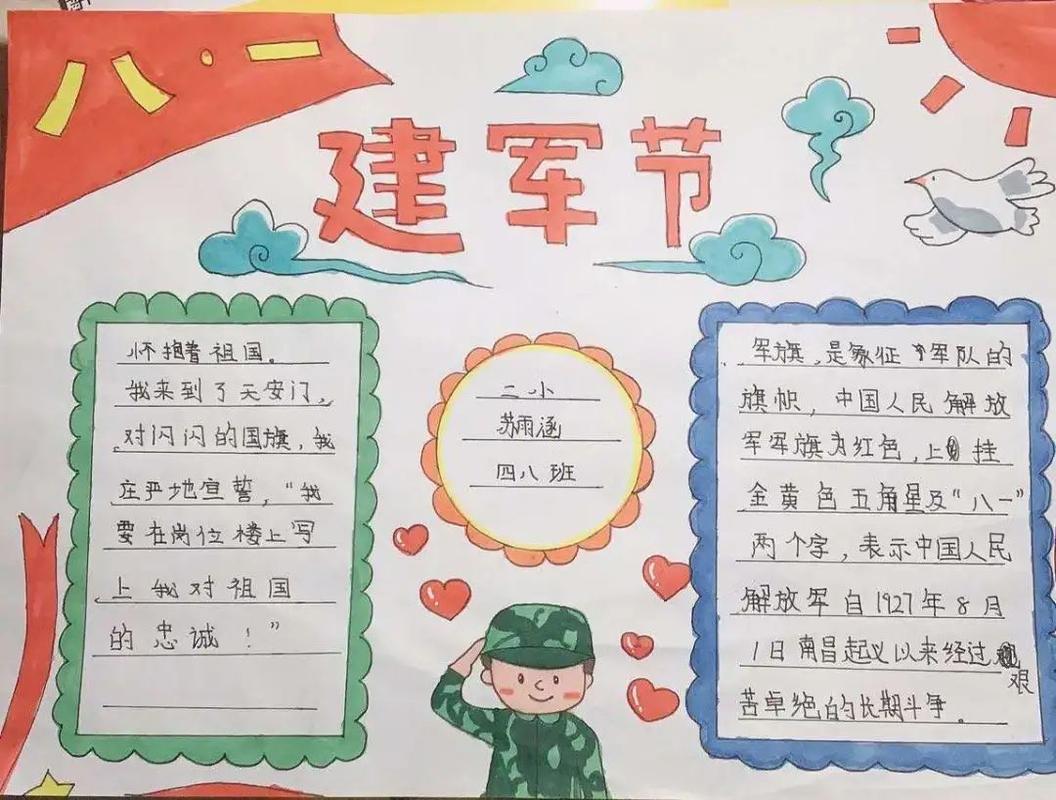 八·一
建军节
怀抱着祖国。
我来到了天安门,
对闪闪的国旗,我
庄严地宣誓,“我
要在岗位楼上写
上我对祖国
的忠诚!”
二小
苏雨涵
四八班
军旗,是象征军队的
旗帜,中国人民解放
军军旗为红色,上挂
金黄色五角星及“八一”
两个字,表示中国人民
解放军自1927年8月
1日南昌起义以来经过艰
苦卓绝的长期斗争。